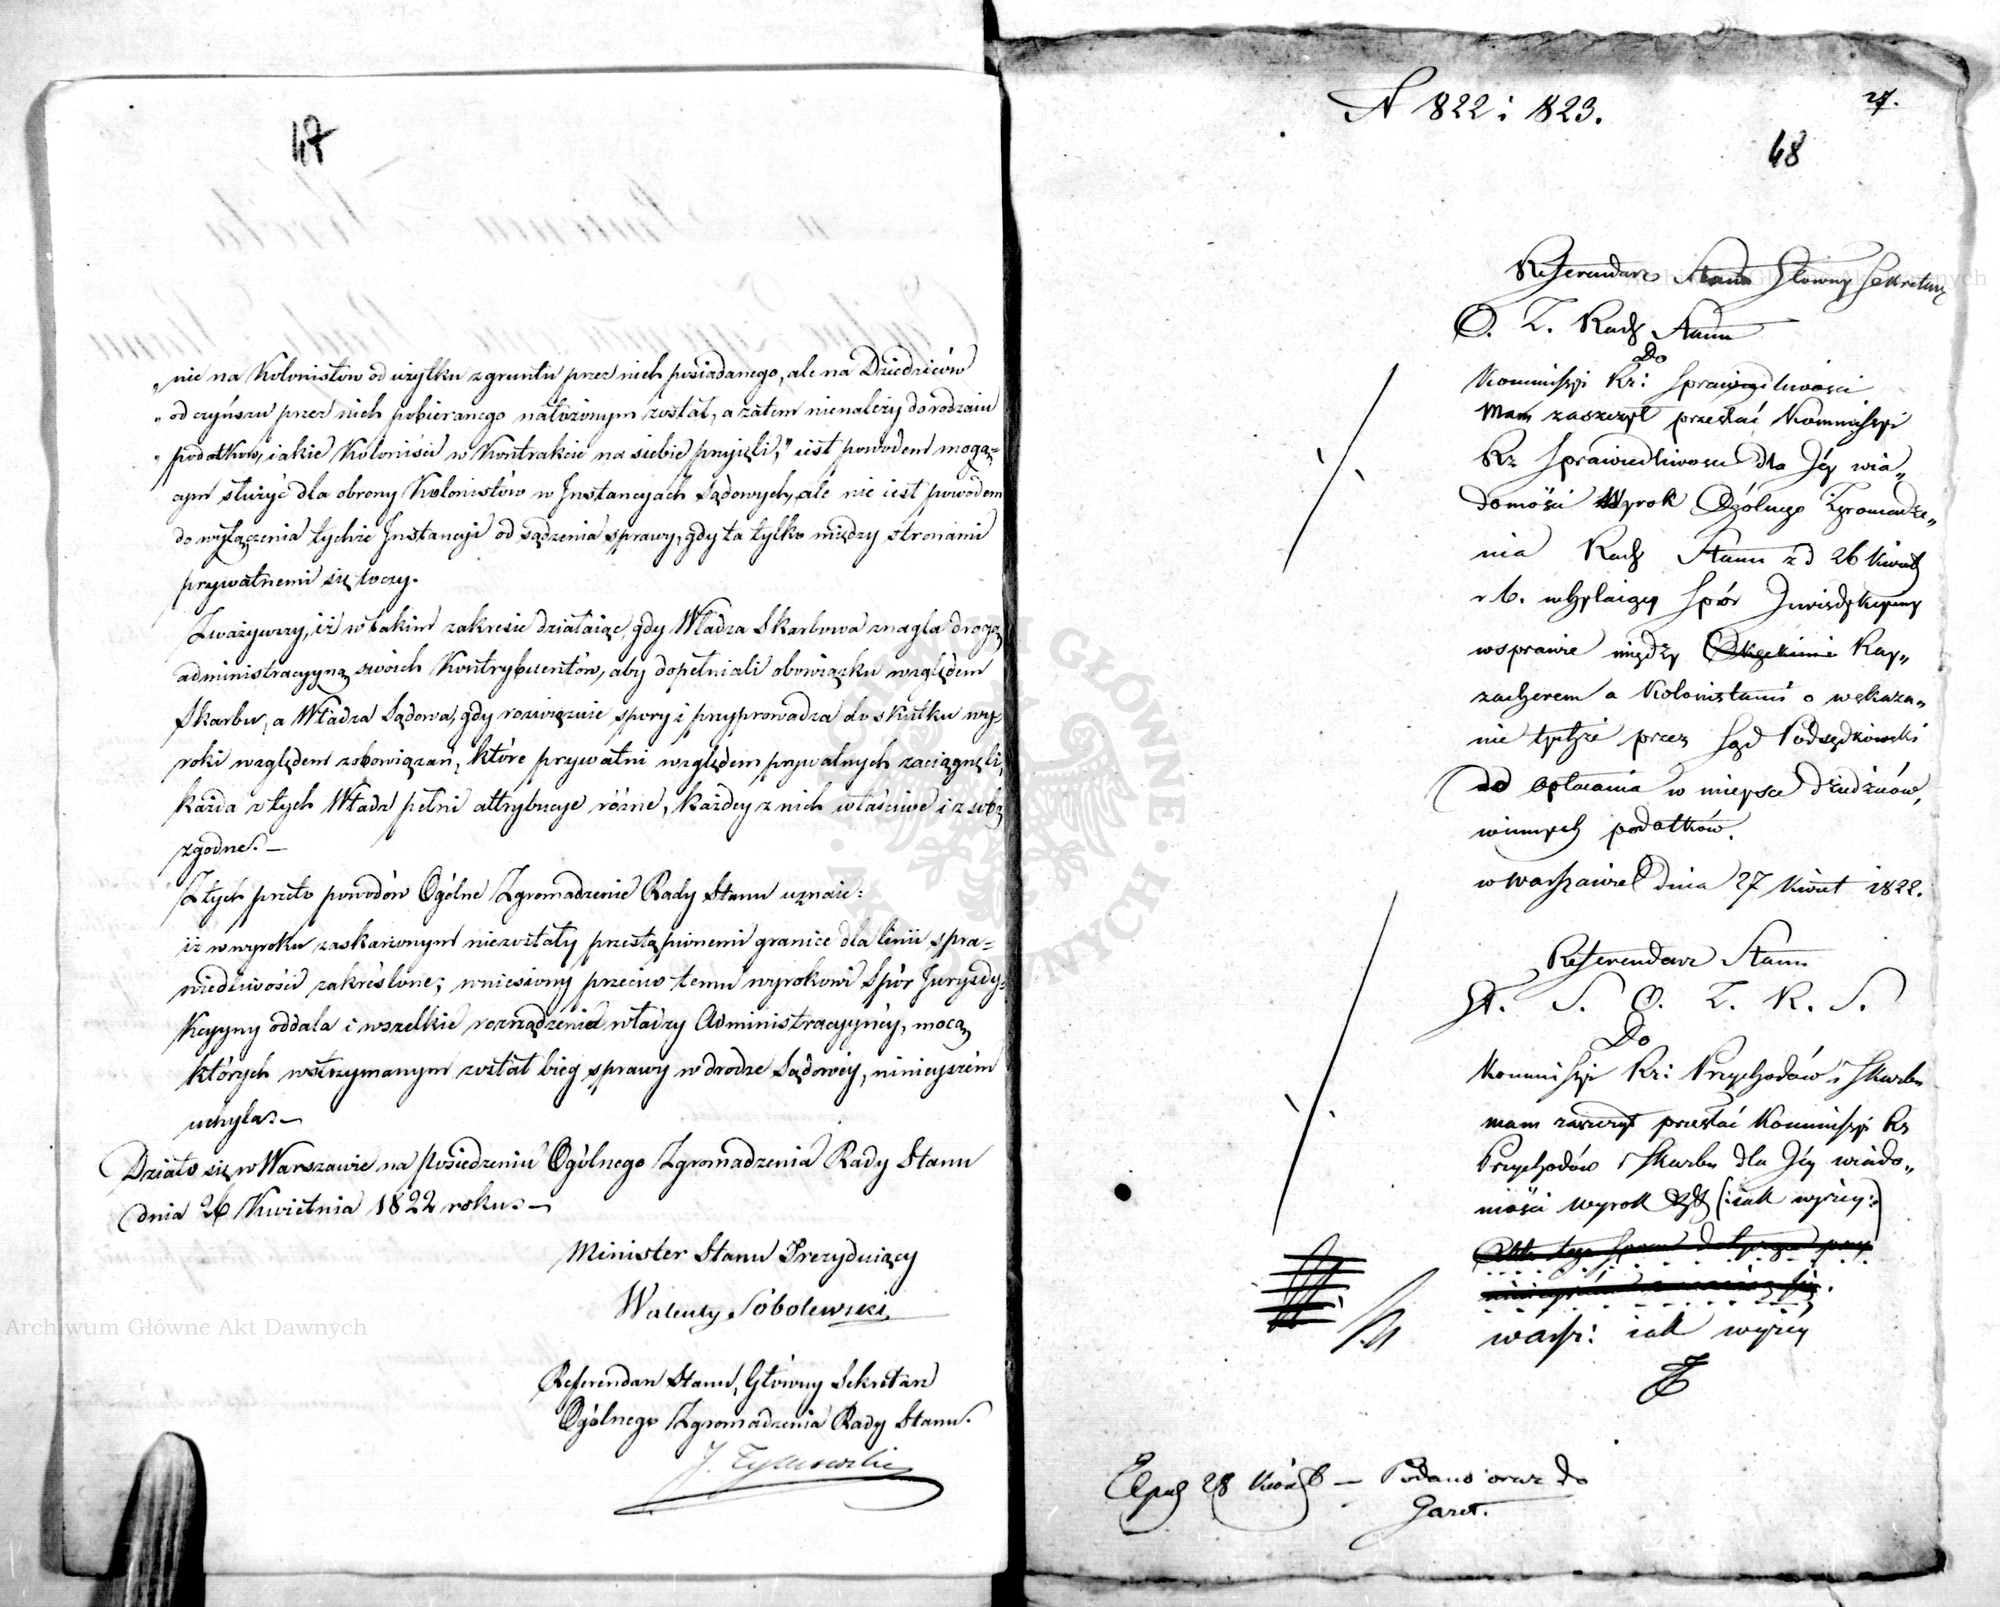 47
„nie na Kolonistów od użytku z gruntu przez nich posiadanego, ale na Dziedziców
„od czynszu przez nich pobieranego nałożonym został, a zatem nienależy do rodzaiu
„podatków, iakie Koloniści w Kontrakcie na siebie przyięli," iest powodem mogą=
cym służyć dla obrony Kolonistów w Instancyach Sądowych, ale nie iest powodem
do wyłączenia tychże Instancyi od sądzenia sprawy, gdy ta tylko między stronami
prywatnemi się toczy.
Zważywszy, iż w takim zakresie działaiąc, gdy Władza Skarbowa znagla drogą
administracyyną swoich Kontrybuentów, aby dopełniali obowiązku względem
Skarbu, a Władza Sądowa, gdy rozwiązuie spory i przyprowadza do skutku wy=
roki względem zobowiązań, które prywatni względem prywatnych zaciągnęli,
każda z tych Władz pełni attrybucye różne, każdey z nich właściwe i z sobą
zgodne. —
Z tych przeto powodów Ogólne Zgromadzenie Rady Stanu uznaie:
iż w wyroku zaskarżonym niezostały przestąpionemi granice dla linii spra=
wiedliwości zakreślone; wniesiony przeciw temu wyrokowi Spór Juryzdy=
kcyyny oddala i wszelkie rozrządzenia władzy Administracyynéy, mocą
których wstrzymanym został bieg sprawy w drodze Sądowéy, ninieyszém
uchyla. —
Działo się w Warszawie na Posiedzeniu Ogólnego Zgromadzenia Rady Stanu
dnia 26 Kwietnia 1822 roku. —
Minister Stanu Prezyduiący
Walenty Sobolewski
Referendarz Stanu, Główny Sekretarz
Ogólnego Zgromadzenia Rady Stanu.
J. Tymowski
A 1822 i 1823.
27.
48
Referendarz Stanu Główny Sekretarz
O. Z. Rady Stanu
Do
Kommissyi Rz: Sprawiedliwości
Mam zaszczyt przesłać Kommissyi
Rz Sprawiedliwości dla Jéy wia„
domości Wyrok Ogólnego Zgromadze„
nia Rady Stanu z d 26 Kwiet
r b. w Spór Jurisdykcyiny
w sprawie między Kay„
zacherem a Kolonistami o wskaza„
nie tychże przez Sąd Podsędkowski
do opłacania w mieysce dziedziców,
winnych podatków.
w Warszawie dnia 27 Kwiet 1822.
Referendarz Stanu
G. S. O. Z. R. S.
Do
Kommissyi Rz: Przychodów i Skarbu
mam zaszczyt przesłać Kommissyi Rz
Przychodów i Skarbu dla Jéy wiado„
mości wyrok (iak wyżey:)
warsz: iak wyżéy
28 Kwiet — Podano oraz do
Gazet.
Archiwum Główne Akt Dawnych
Archiwum Główne Akt Dawnych
ARCHIWUM GŁÓWNE AKT DAWNYCH